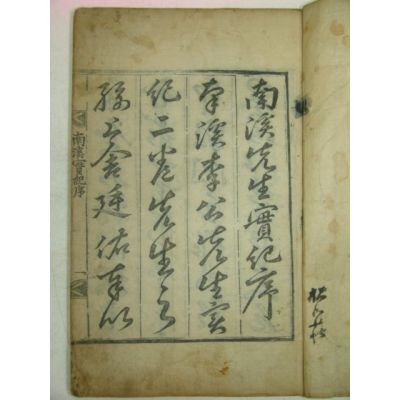 南溪先生實紀序
南溪李公先生實
紀二卷先生之
孫上舍廷佑奉以
南溪實紀序
一